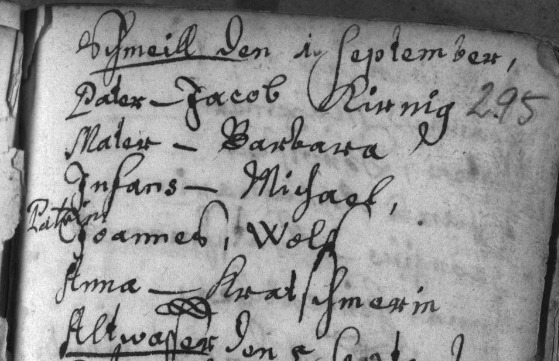 Schmeill den 1 September,
Pater – Jacob Kirnig 295
Mater – Barbara
Infans – Michael,
Patrini
Joannes, Wolf
Anna – Kratschmerin
Altwasser den 5 Septe